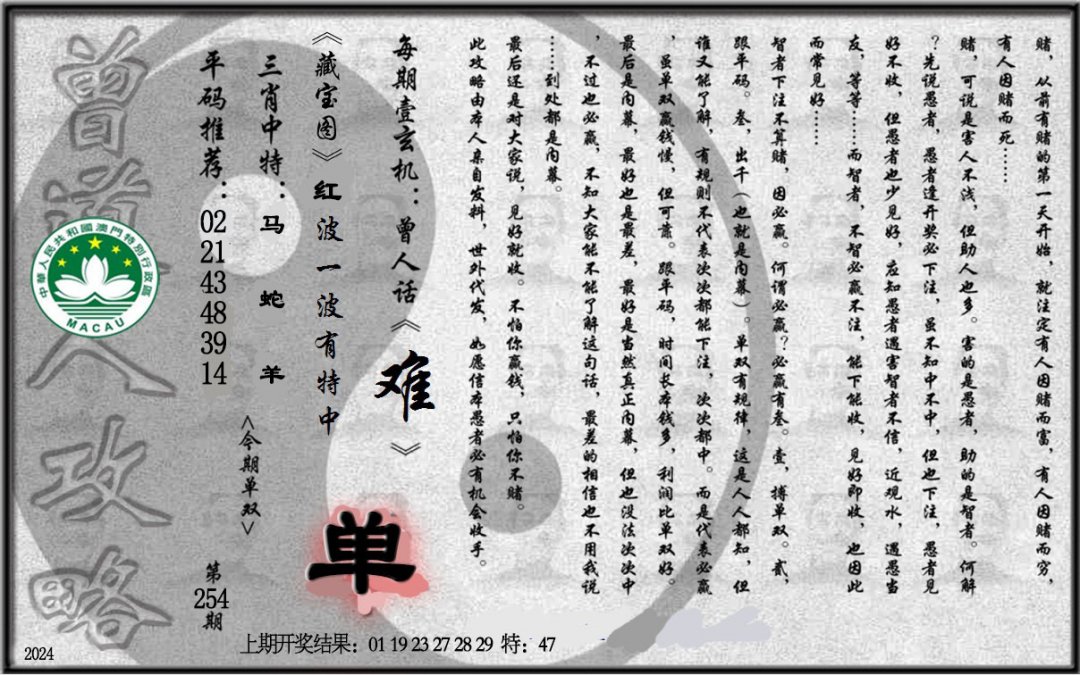 赌，从前有赌的第一天开始，就注定有人因赌而富，有人因赌而穷，
有人因赌而死……
赌，可说是害人不浅，但助人也多。害的是愚者，助的是智者。何解
？先说愚者，愚者逢开奖必下注，虽不知中不中，但也下注，愚者见
好不收，但愚者也少见好，应知愚者遇害智者不信，近观水，遇愚当
友，等等……而智者，不智必赢不注，能下能收，见好即收，也因此
而常见好……
智者下注不算赌，因必赢。何谓必赢？必赢有叁。壹，搏单双。贰，
跟平码。叁，出千（也就是内幕）。单双有规律，这是人人都知，但
谁又能了解，有规则不代表次次都能下注，次次都中。而是代表必赢
，虽单双赢钱慢，但可靠。跟平码，时间长本钱多，利润比单双好。
最后是内幕，最好也是最差，最好是当然真正内幕，但也没法次次中
，不过也必赢，不知大家能不能了解这句话，最差的相信也不用我说
……到处都是内幕。
最后还是对大家说，见好就收。不怕你赢钱，只怕你不赌。
此攻略由本人亲自发料，世外代发，如愿信本愚者必有机会收手。
每期壹玄机：曾人话《难》
《藏宝图》红波一波有特中
单
三肖中特：马 蛇 羊
<今期单双>
平码推荐：02 21 43 48 39 14
第254期
曾道人攻略
中華人民共和國澳門特別行政區
MACAU
上期开奖结果：01 19 23 27 28 29 特：47
2024